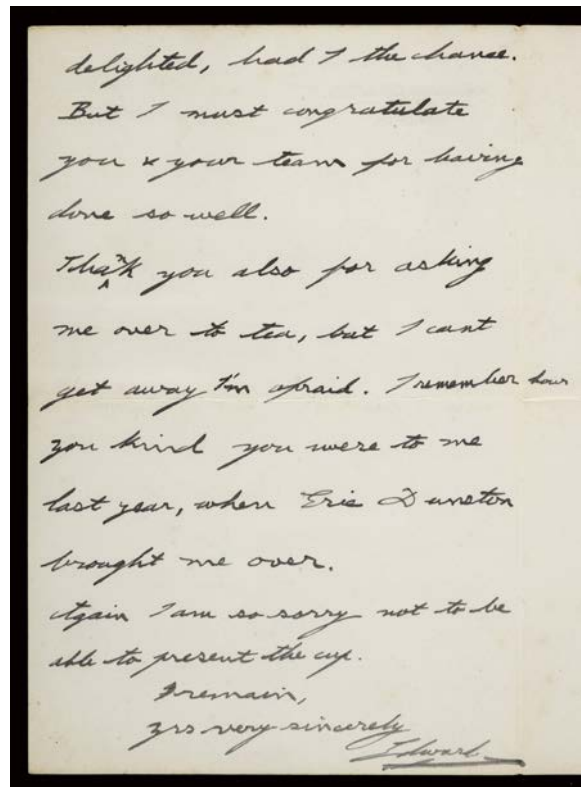 delighted, had I the chance.
But I must congratulate
you & your team for having
done so well.
Thank you also for asking
me over to tea, but I cant
get away I'm afraid. I remember how
you kind you were to me
last year, when Eric Dunston
brought me over.
Again I am so sorry not to be
able to present the cup.
I remain,
yrs very sincerely
Edward